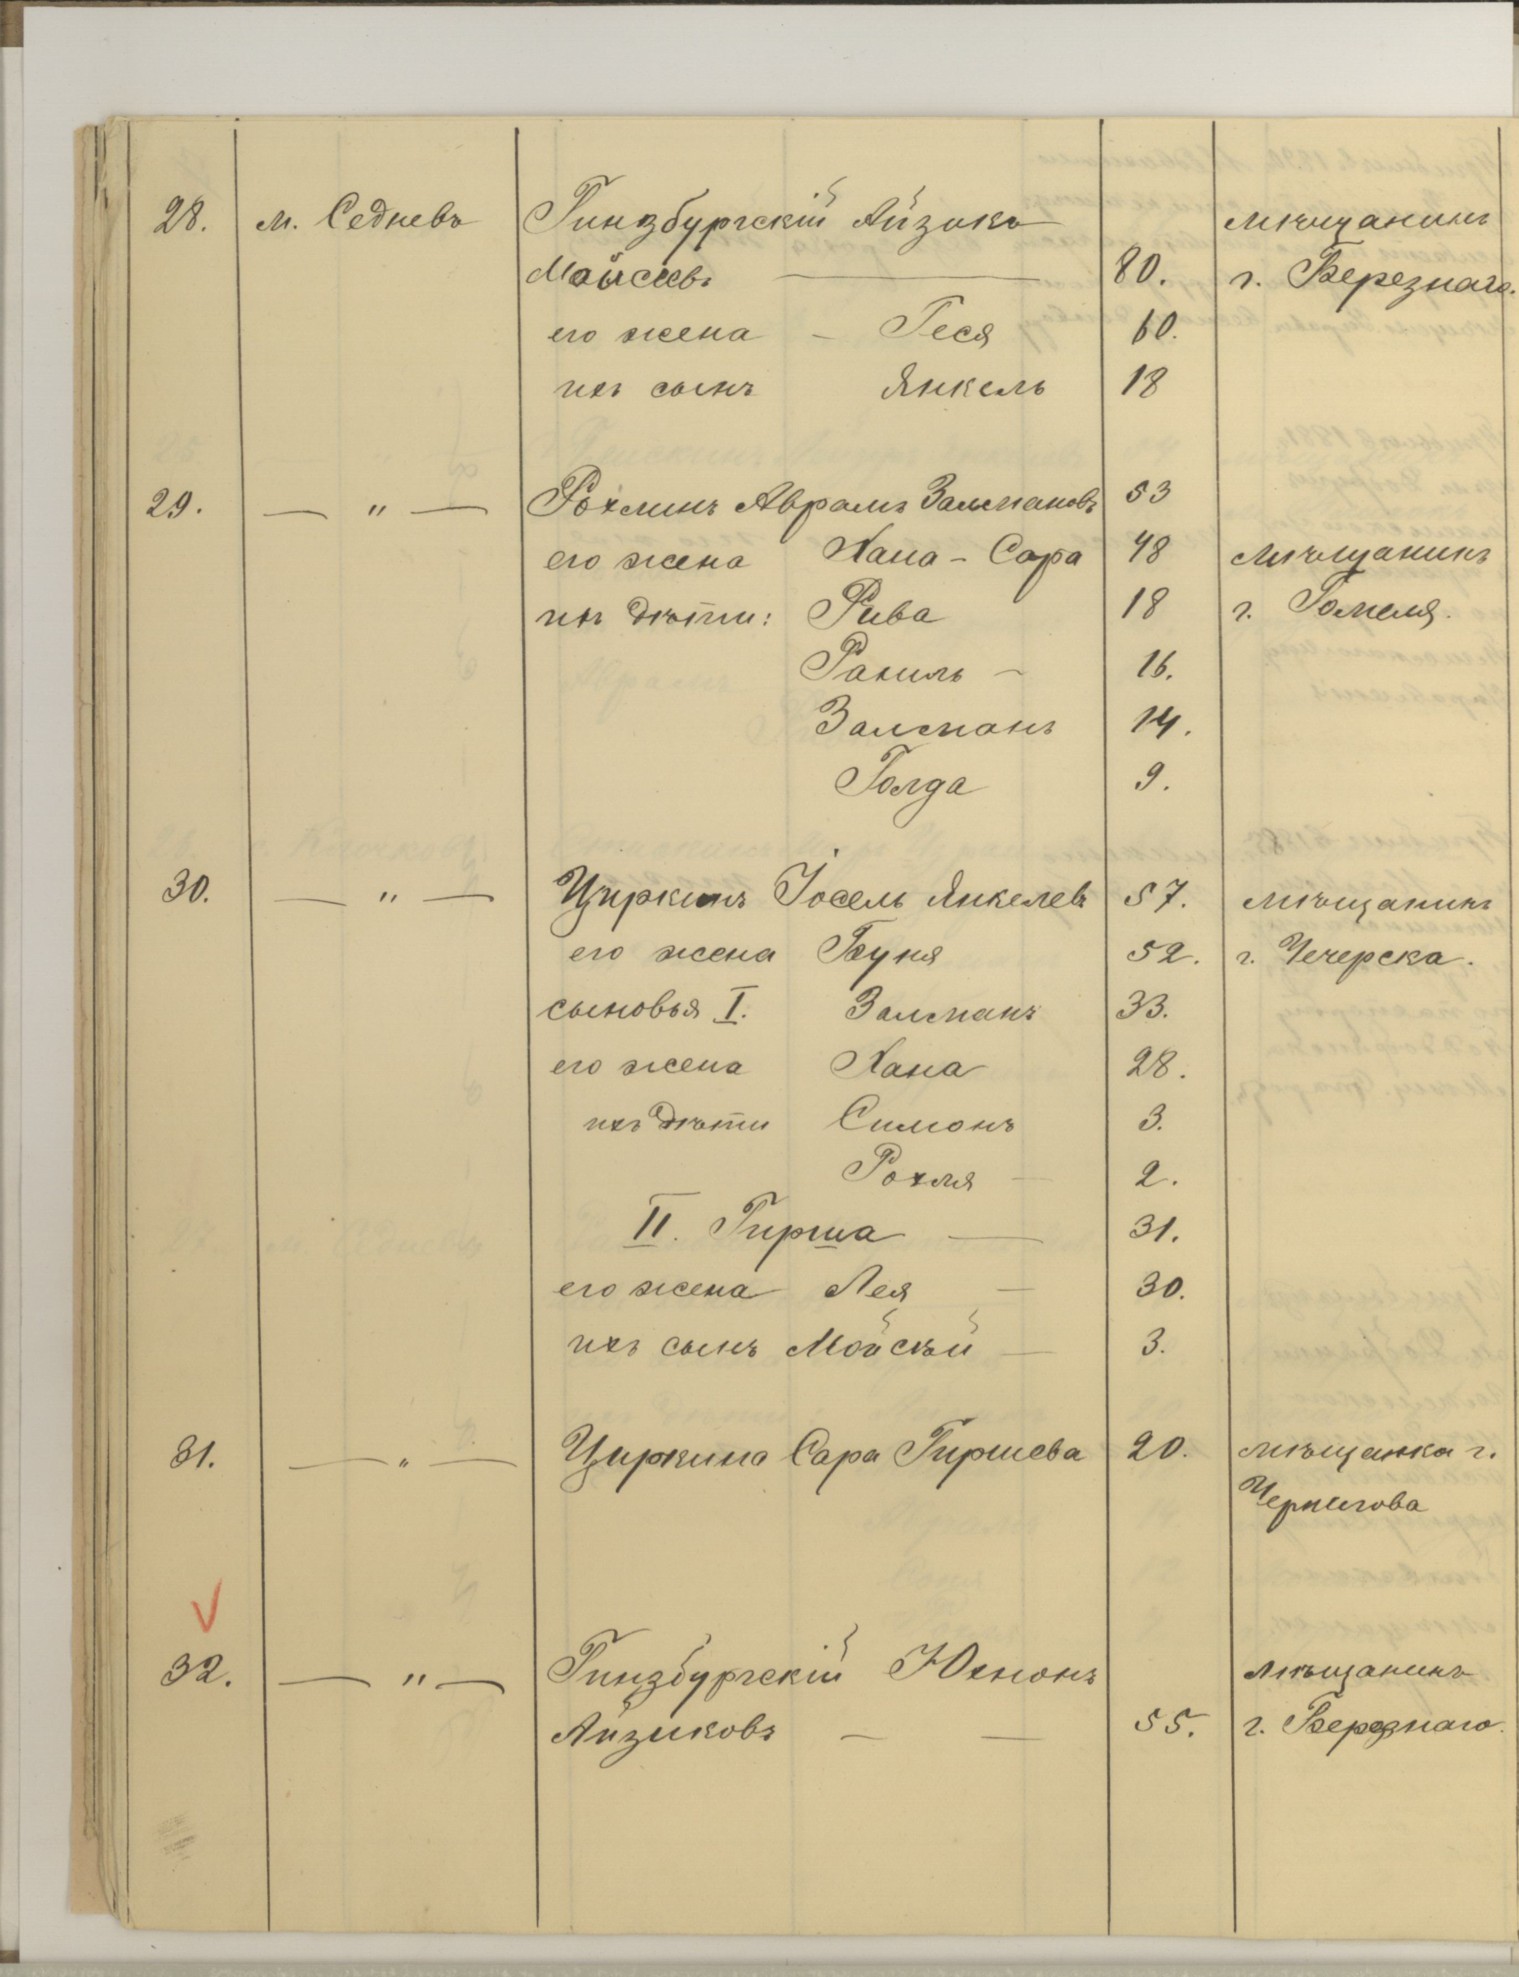 28. м. Седневъ Гинзбургскій Айзикъ мѣщанинъ
Мойсеевъ — 80. г. Березнаго.
его жена – Геся 60.
ихъ сынъ Янкель 18
29. — " — Рохлинъ Аврамъ Залмановъ 53
его жена Хана - Сара 48 мѣщанинъ
ихъ дѣти: Рива 18 г. Гомеля.
Рахиль – 16.
Залманъ 14.
Голда 9.
30. — " — Циркинъ Іосель Янкелевъ 57. мѣщанинъ
его жена Буня 52. г. Чечерска.
сыновья I. Залманъ 33.
его жена Хана 28.
ихъ дѣти Симонъ 3.
Рохля — 2.
II. Гирша — 31.
его жена Лея — 30.
ихъ сынъ Мойсѣй — 3.
31. — " — Циркина Сара Гиршева 20. мѣщанка г.
Чернигова
32. — " — Гинзбургскій Юхнонъ мѣщанинъ
Айзиковъ — — 55. г. Березнаго.